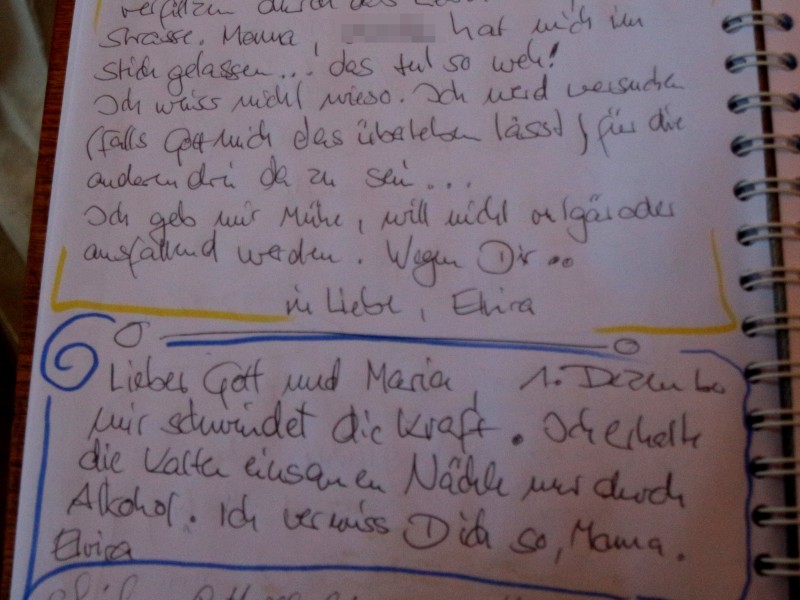 durch das
Strasse. Mama, hat mich im
Stich gelassen... das tut so weh!
Ich weiss nicht wieso. Ich werd versuchen
(falls Gott mich das überleben lässt) für die
anderen drei da zu sein...
Ich geb mir Mühe, will nicht vulgär oder
ausfallend werden. Wegen Dir..
in Liebe, Elvira
Lieber Gott und Maria, 1. Dezember
mir schwindet die Kraft. Ich erhelle
die kalten einsamen Nächte nur durch
Alkohol. Ich vermiss Dich so, Mama.
Elvira